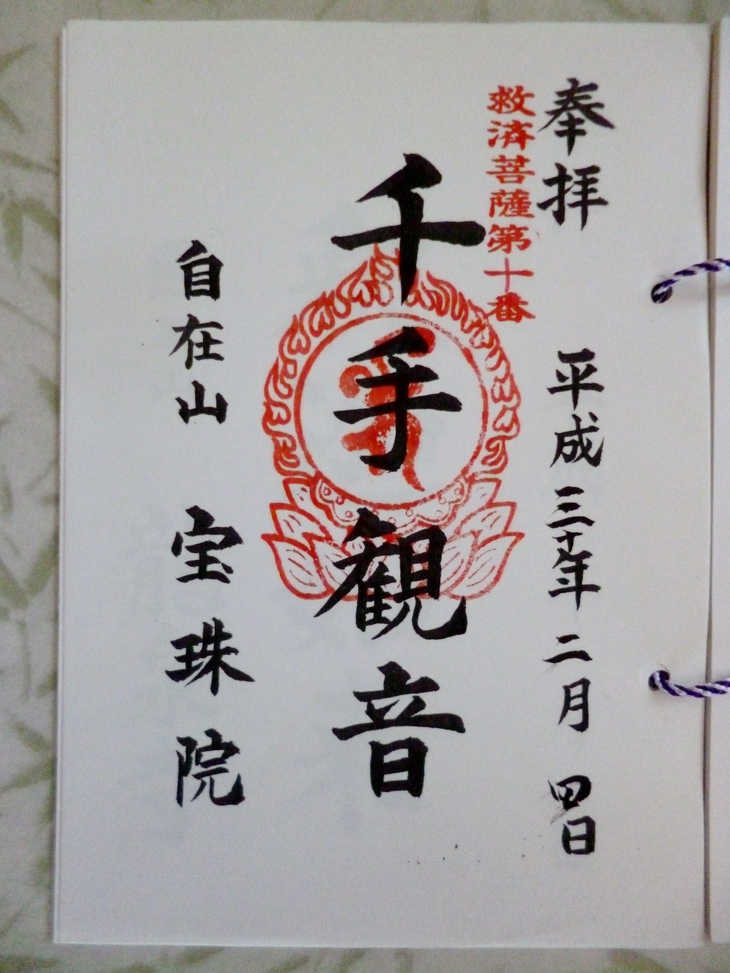 奉拝 平成三十年二月四日
救済菩薩第十番
千手観音
自在山 宝珠院